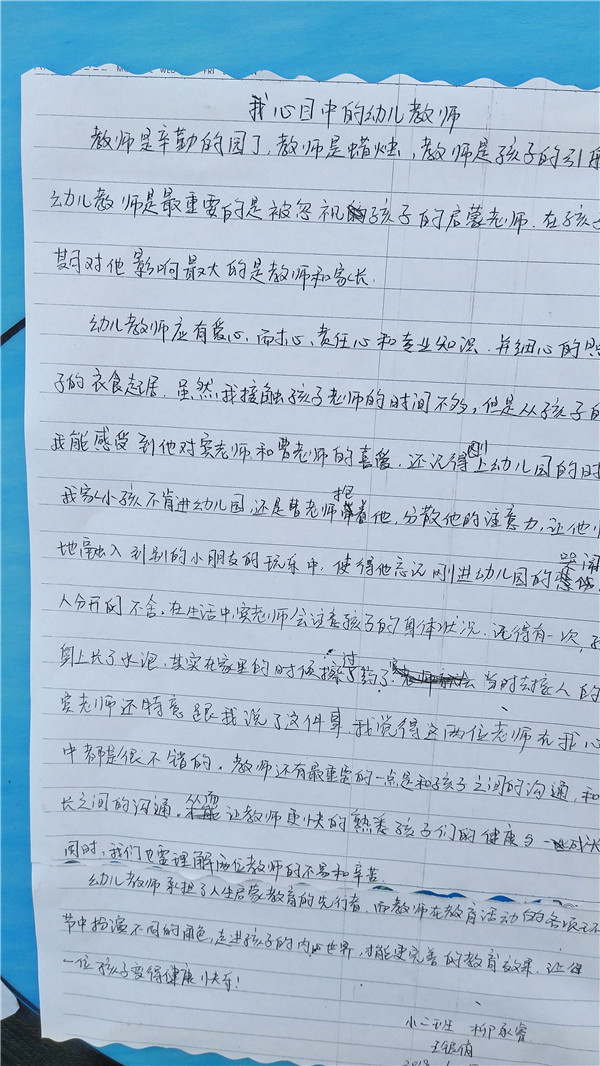 我心目中的幼儿教师
教师是辛勤的园丁,教师是蜡烛,教师是孩子的引
幼儿教师是最重要的是被忽视的孩子的启蒙老师.在孩子
期对他影响最大的是教师和家长.
幼儿教师应有爱心,耐心、责任心和专业知识.并细心的照
子的衣食起居.虽然我接触孩子老师的时间不多,但是从孩子的
我能感受到他对安老师和曹老师的喜爱.还记得刚上幼儿园的时
我家小孩不肯进幼儿园,还是曹老师抱着他,分散他的注意力,让他
地融入到别的小朋友的玩乐中,使得他忘记刚进幼儿园的哭闹
人分开的不舍.在生活中,安老师会注意孩子的身体状况.记得有一次,
身上长了水泡.其实在家里的时候擦过药了.当时去接人的
安老师还特意跟我说了这件事.我觉得这两位老师在我心
中都是很不错的.教师还有最重要的一点是和孩子之间的沟通,和
长之间的沟通.从而让教师更快的熟悉孩子们的健康与一些成
同时,我们也要理解两位教师的不易和辛苦.
幼儿教师承担了人生启蒙教育的先行者,而教师在教育活动的各项环
节中扮演不同的角色,走进孩子的内心世界,才能更完善的教育效果.让每
一位孩子变得健康快乐!
小二班 柳永睿